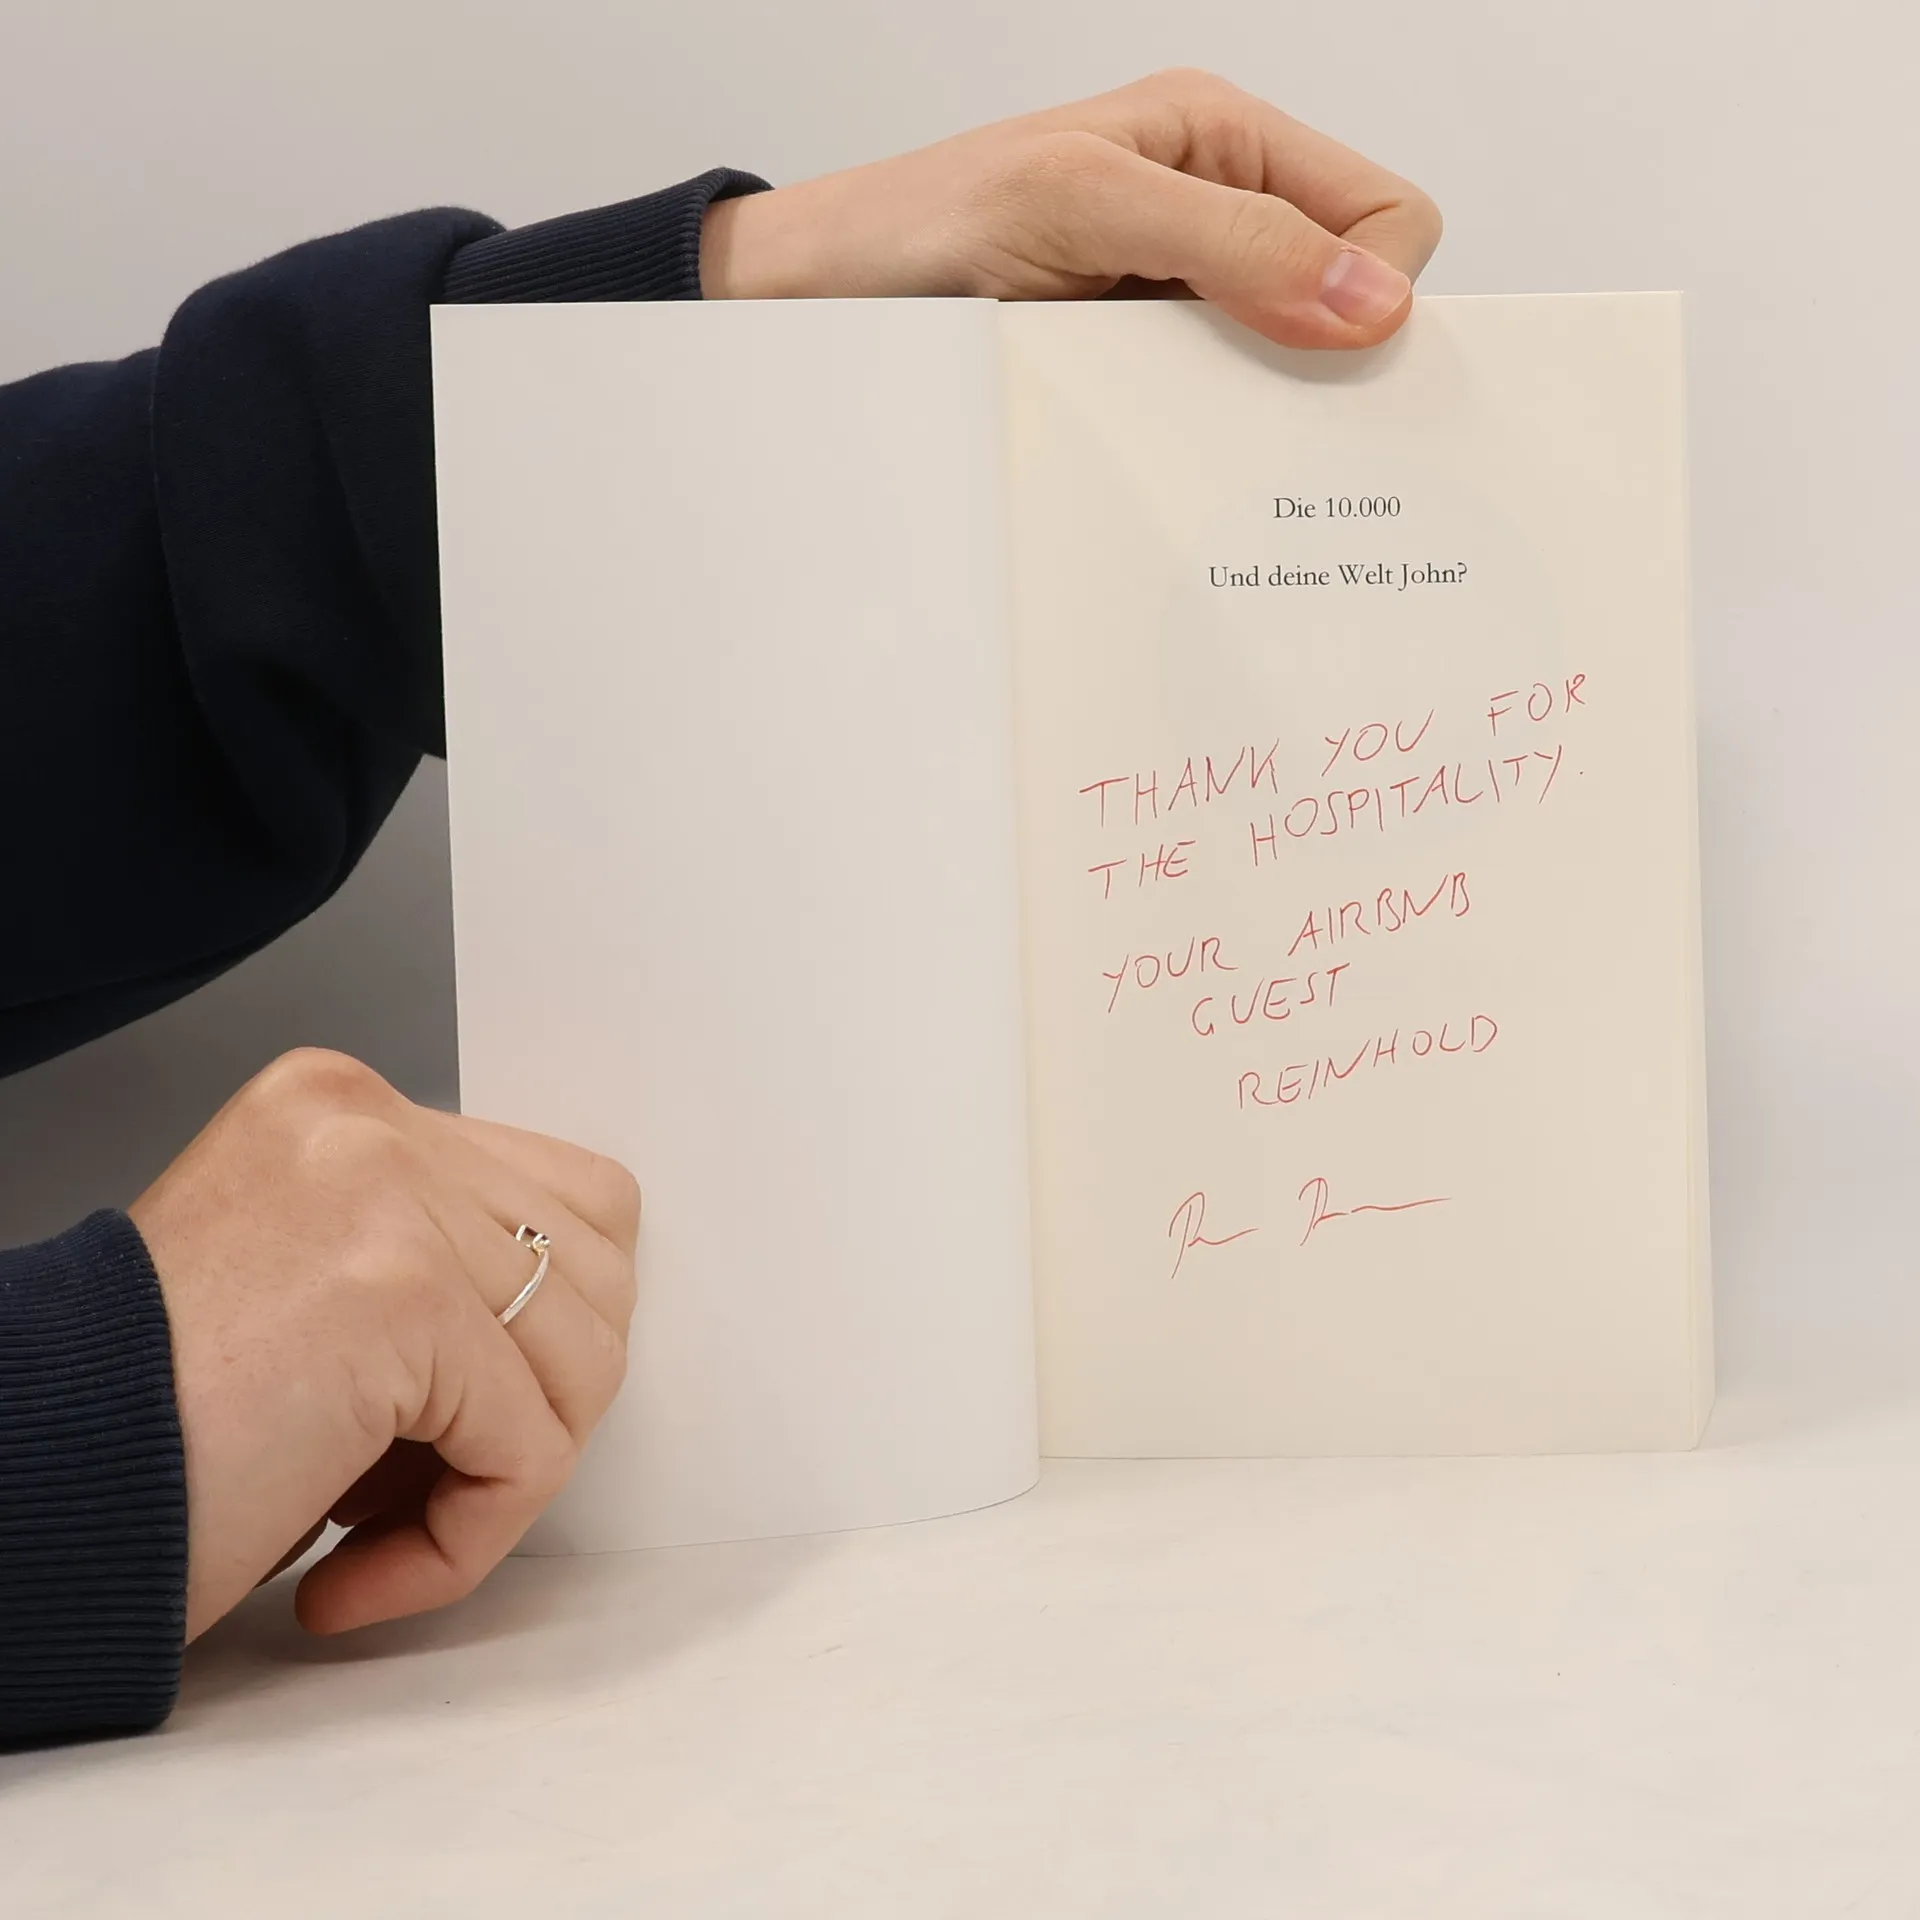 Die 10.000
Und deine Welt John?
THANK YOU FOR
THE HOSPITALITY.
YOUR AIRBNB
GUEST
REINHOLD